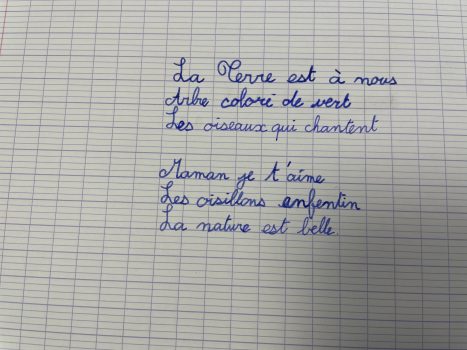 La Terre est à nous
Arbre coloré de vert
Les oiseaux qui chantent
Maman je t'aime
Les oisillons enfentin
La nature est belle.